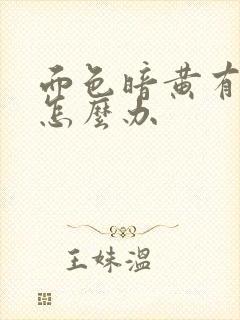 面色暗黄有
怎麼办
王妹溫